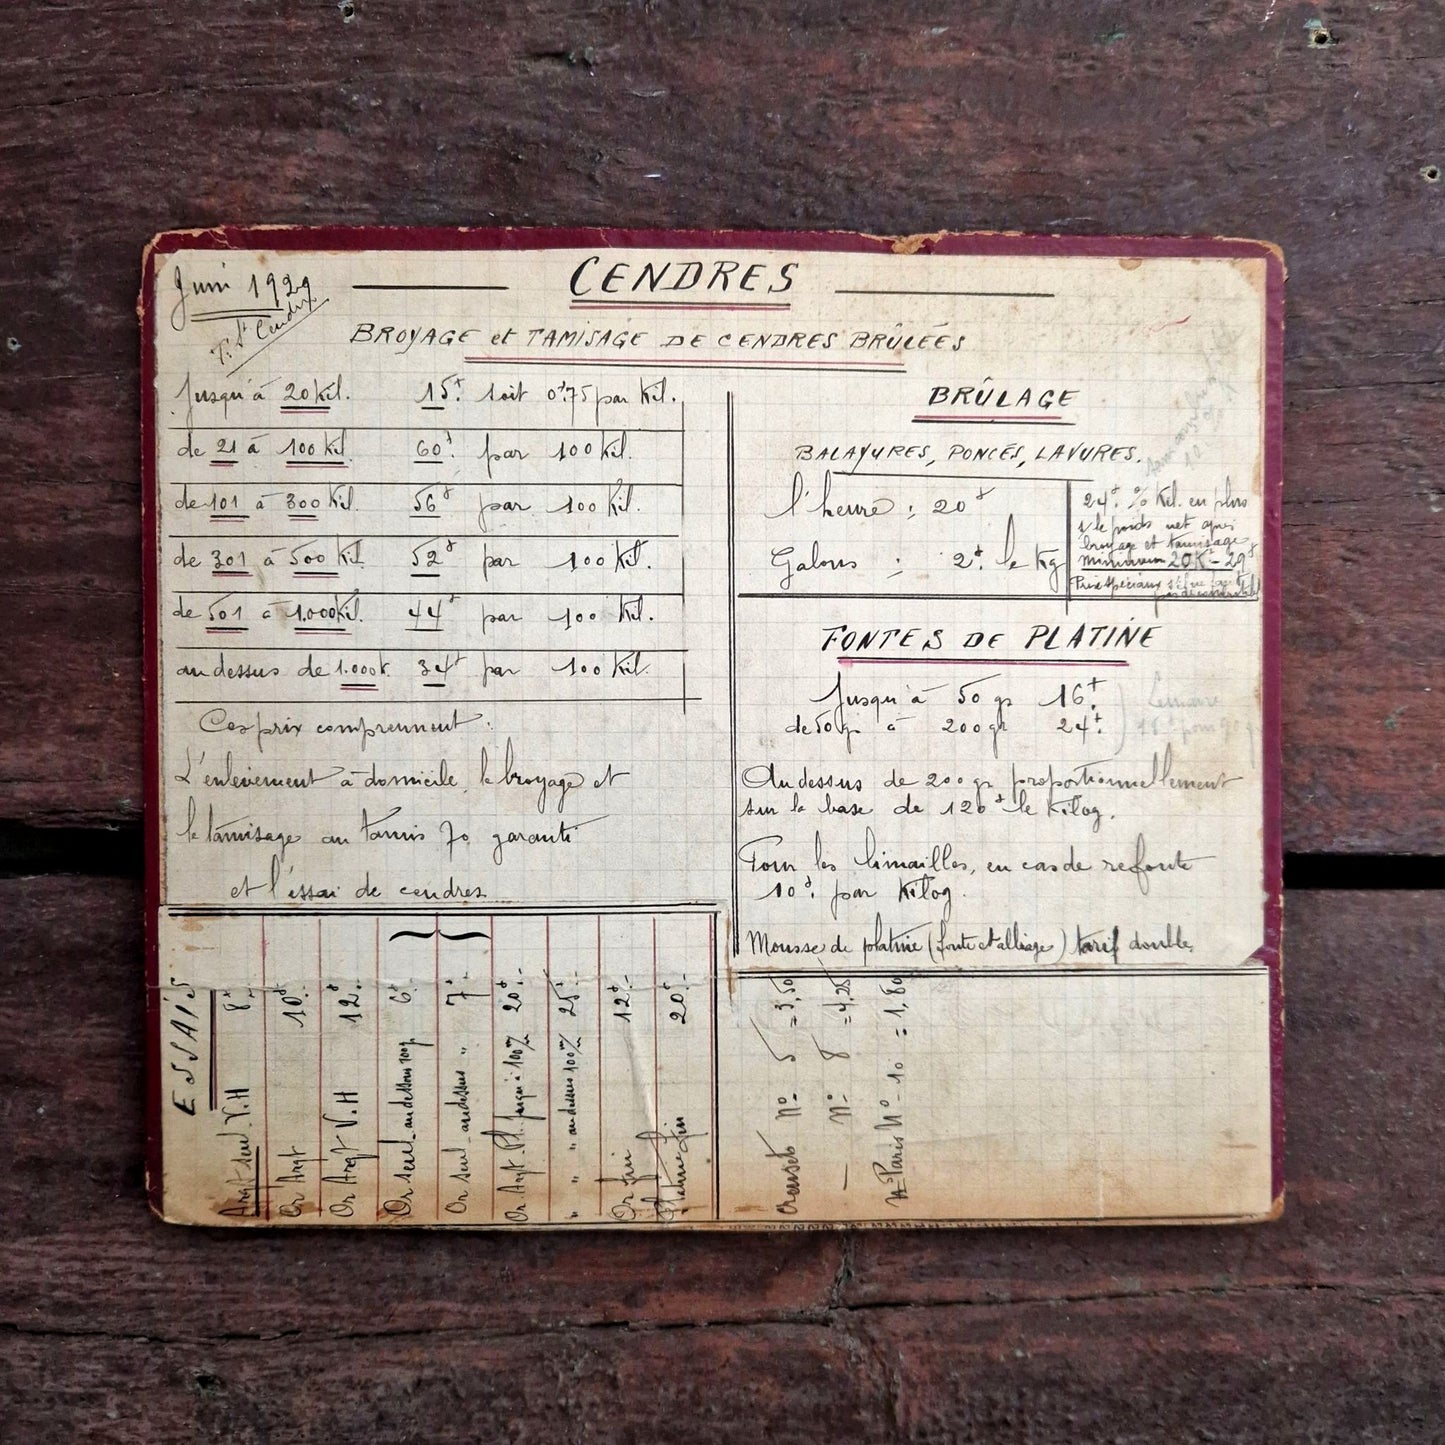 Juin 1929
CENDRES
BROYAGE et TAMISAGE DE CENDRES BRÛLÉES
Jusqu'à 20 Kil. 15f. soit 0f.75 par Kil.
de 21 à 100 Kil. 60f. par 100 Kil.
de 101 à 300 Kil. 56f par 100 Kil.
de 301 à 500 Kil. 52f par 100 Kil.
de 501 à 1.000 Kil. 44f par 100 Kil.
au dessus de 1.000 k. 34f par 100 Kil.
Ces prix comprennent :
L'enlèvement à domicile, le broyage et
le tamisage au tamis 70 garanti
et l'éssai de cendres
BRÛLAGE
BALAYURES, PONCÉS, LAVURES.
l'heure : 20f
Galons : 2f. le Kg
24f. % Kil. en plus
s le poids net après
broyage et tamisage
Minimum 20K - 29f
Prix spéciaux
FONTES DE PLATINE
Jusqu'à 50 gr 16f.
de 50 gr à 200 gr 24f.
Au dessus de 200 gr proportionnellement
sur la base de 120f le Kilog.
Pour les limailles, en cas de refonte
10f. par Kilog.
Mousse de platine (fonte et alliage) tarif double
ESSAIS
Argt seul V.H 8f.-
Or Argt 10f.-
Or Argt V.H 12f.-
Or seul au dessous 100 gr 6f.-
Or seul au dessus " 7f.-
Or Argt. Pl. jusqu'à 100 m/m 20f.-
" " " au dessus 100 m/m 25f.-
Or fin 12f.-
Platine fin 20f.-
Creusets N° 5 = 3,50
— N° 8 = 4,25
N° Paris N° 10 = 1,80